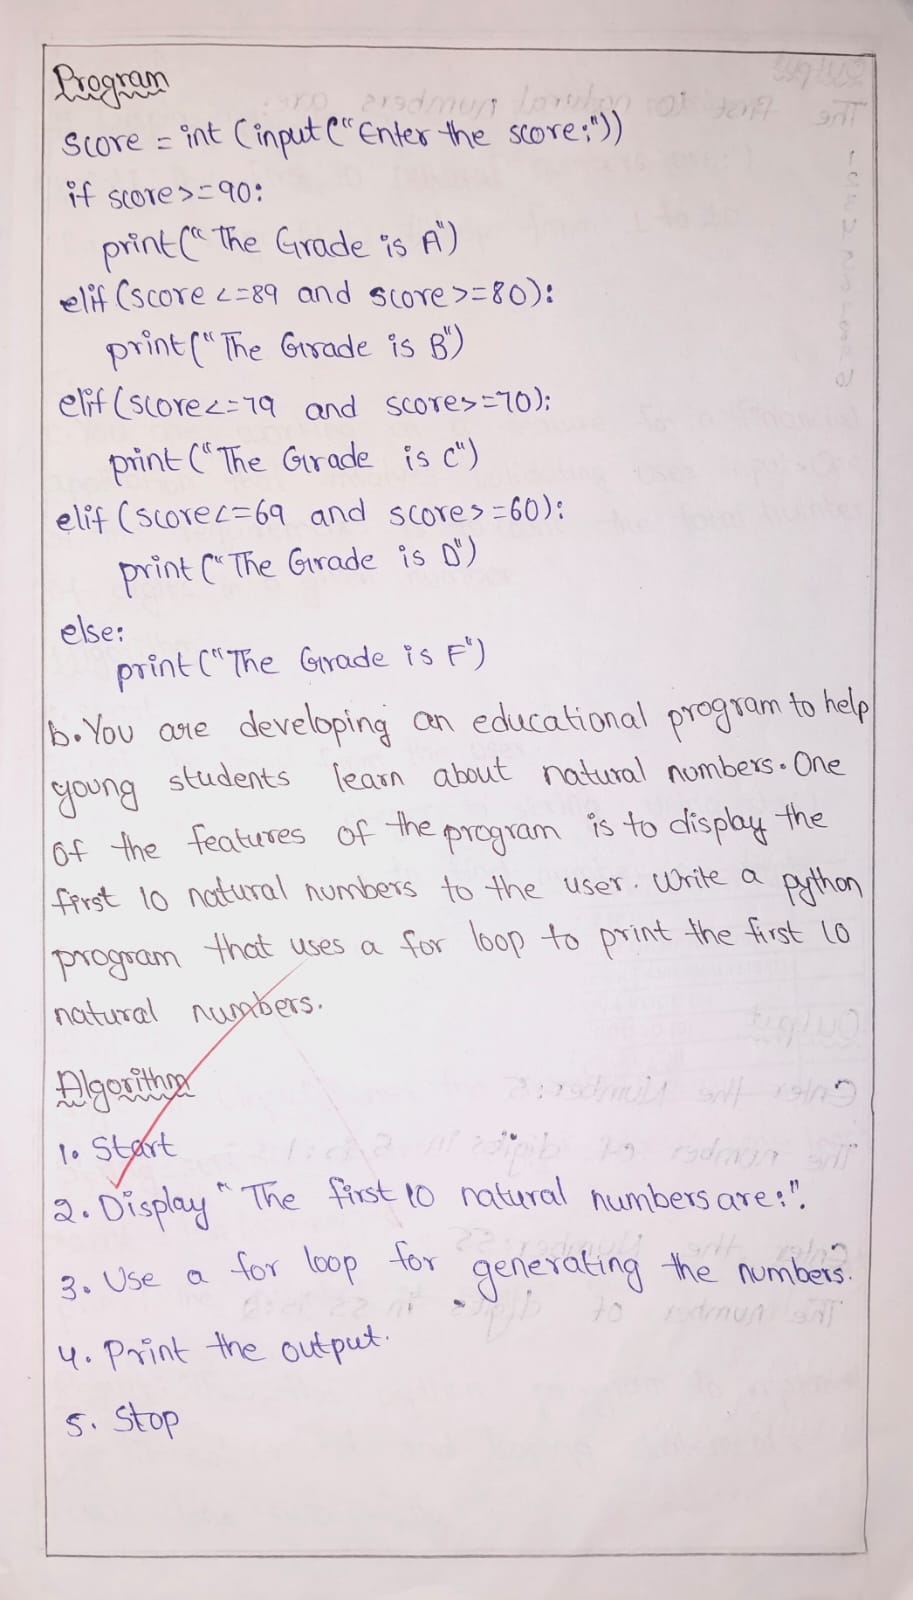 Program
Score = int (input ("Enter the score:"))
if score>=90:
print("The Grade is A")
elif (score <=89 and score>=80):
print("The Grade is B")
elif (score<=79 and score>=70):
print("The Grade is C")
elif (score<=69 and score>=60):
print("The Grade is D")
else:
print("The Grade is F")
b. You are developing an educational program to help
young students learn about natural numbers. One
of the features of the program is to display the
first 10 natural numbers to the user. Write a python
program that uses a for loop to print the first 10
natural numbers.
Algorithm
1. Start
2. Display "The first 10 natural numbers are:".
3. Use a for loop for generating the numbers.
4. Print the output.
5. Stop